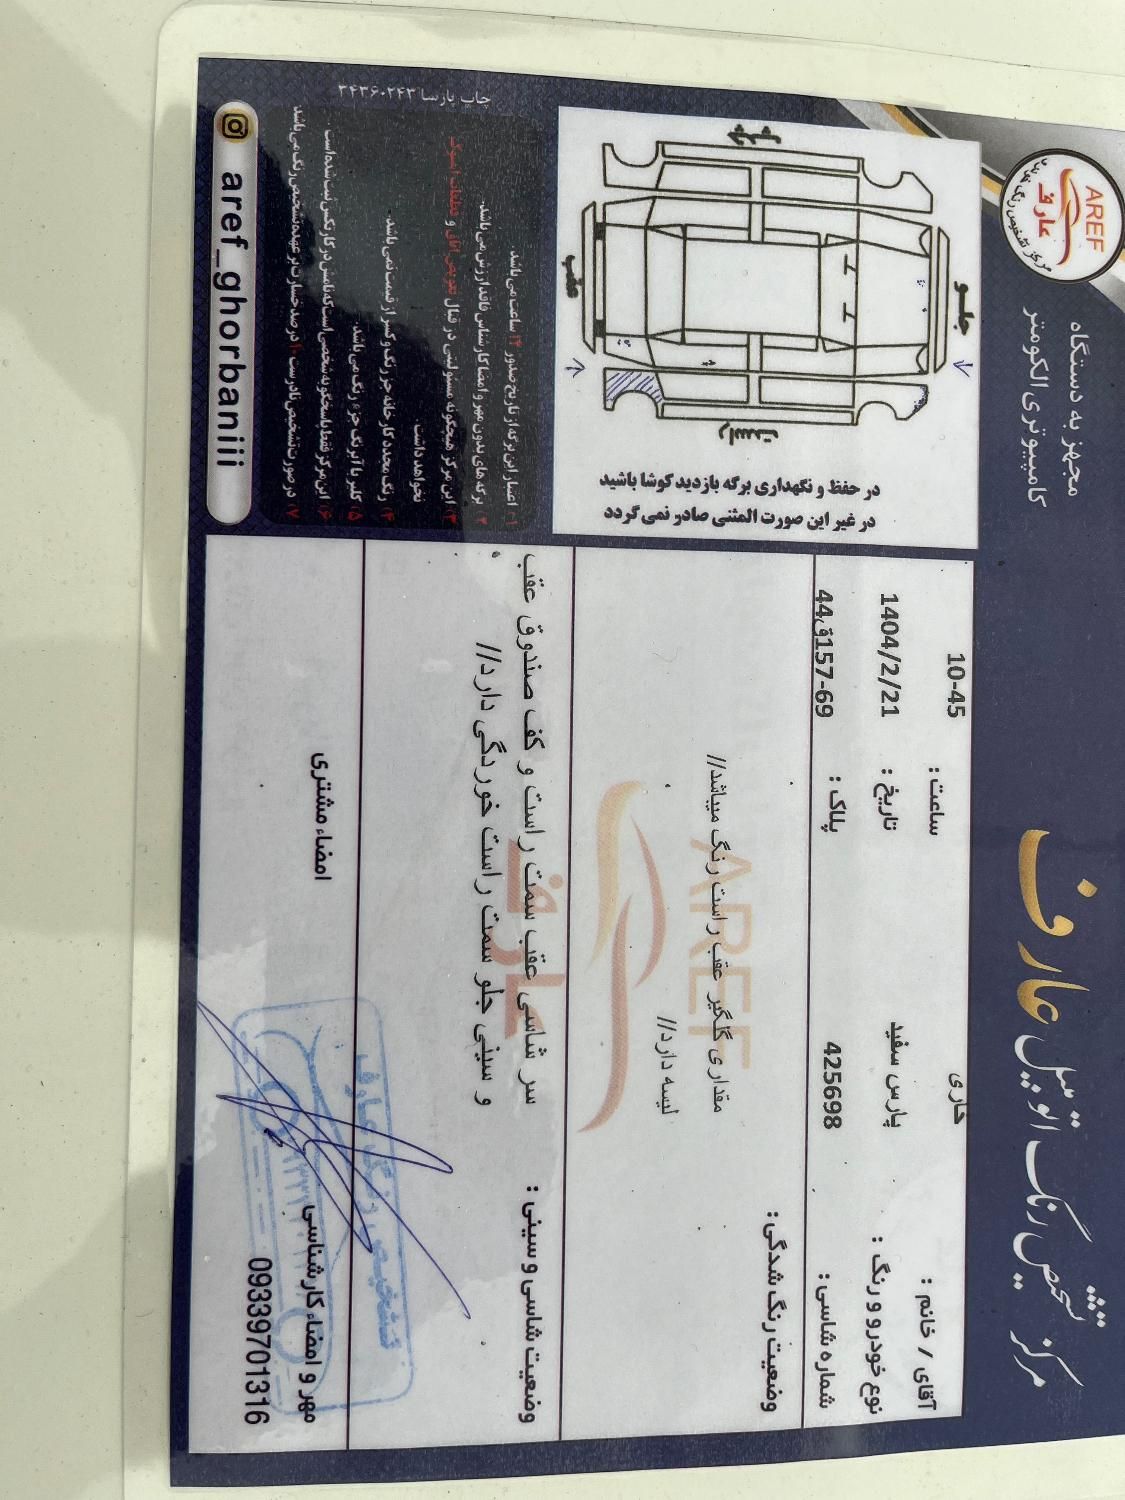 مرکز تشخیص رنگ اتومبیل عارف
AREF
عارف
مرکز تشخیص رنگ خودرو
مجهز به دستگاه
کامپیوتری الکومتر
آقای / خانم : خاری
ساعت : 10-45
نوع خودرو و رنگ : پارس سفید
تاریخ : 1404/2/21
شماره شاسی : 425698
پلاک : 69-157ق44
وضعیت رنگ شدگی :
مقداری گلگیر عقب راست رنگ میباشد//
لیسه دارد//
AREF
عارف
وضعیت شاسی و سینی :
سر شاسی عقب سمت راست و کف صندوق عقب
و سینی جلو سمت راست خوردگی دارد//
مهر و امضاء کارشناسی
امضاء مشتری
تشخیص رنگ عارف
09339701316
جلو
عقب
چپ
راست
در حفظ و نگهداری برگه بازدید کوشا باشید
در غیر این صورت المثنی صادر نمی گردد
۱- اعتبار این برگه از تاریخ صدور ۲۴ ساعت می باشد.
۲- برگه های بدون مهر و امضا کارشناس فاقد ارزش می باشد.
۳- این مرکز هیچگونه مسئولیتی در قبال تعویض اتاق و قطعات استوک
نخواهد داشت.
۴- رنگ مجدد کارخانه جز رنگ و کسر از قیمت نمی باشد.
۵- کلیر یا آبرنگ جزء رنگ می باشد.
۶- این مرکز فقط پاسخگو به شخصی است که نامش در کارتکس ثبت شده است.
۷- در صورت تشخیص نادرست ۱۰ درصد خسارت بر عهده تشخیص رنگ می باشد.
aref_ghorbaniii
چاپ پارسا ۳۴۳۶۰۲۴۳